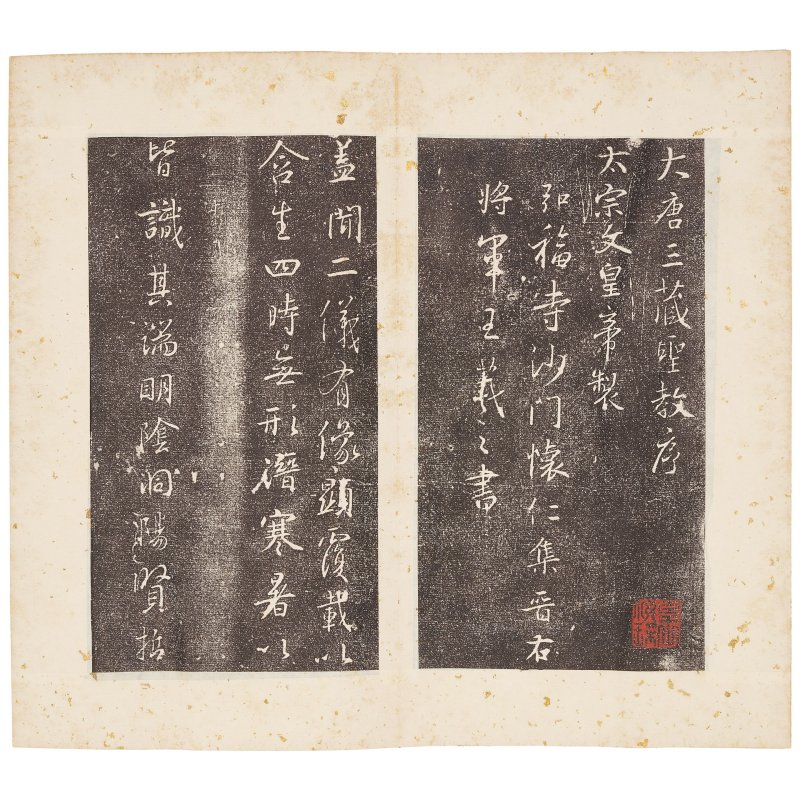 大唐三藏聖教序
太宗文皇帝製
弘福寺沙門懷仁集晉右
將軍王羲之書
蓋聞二儀有像顯覆載以
含生四時無形潛寒暑以
皆識其端明陰洞陽賢哲